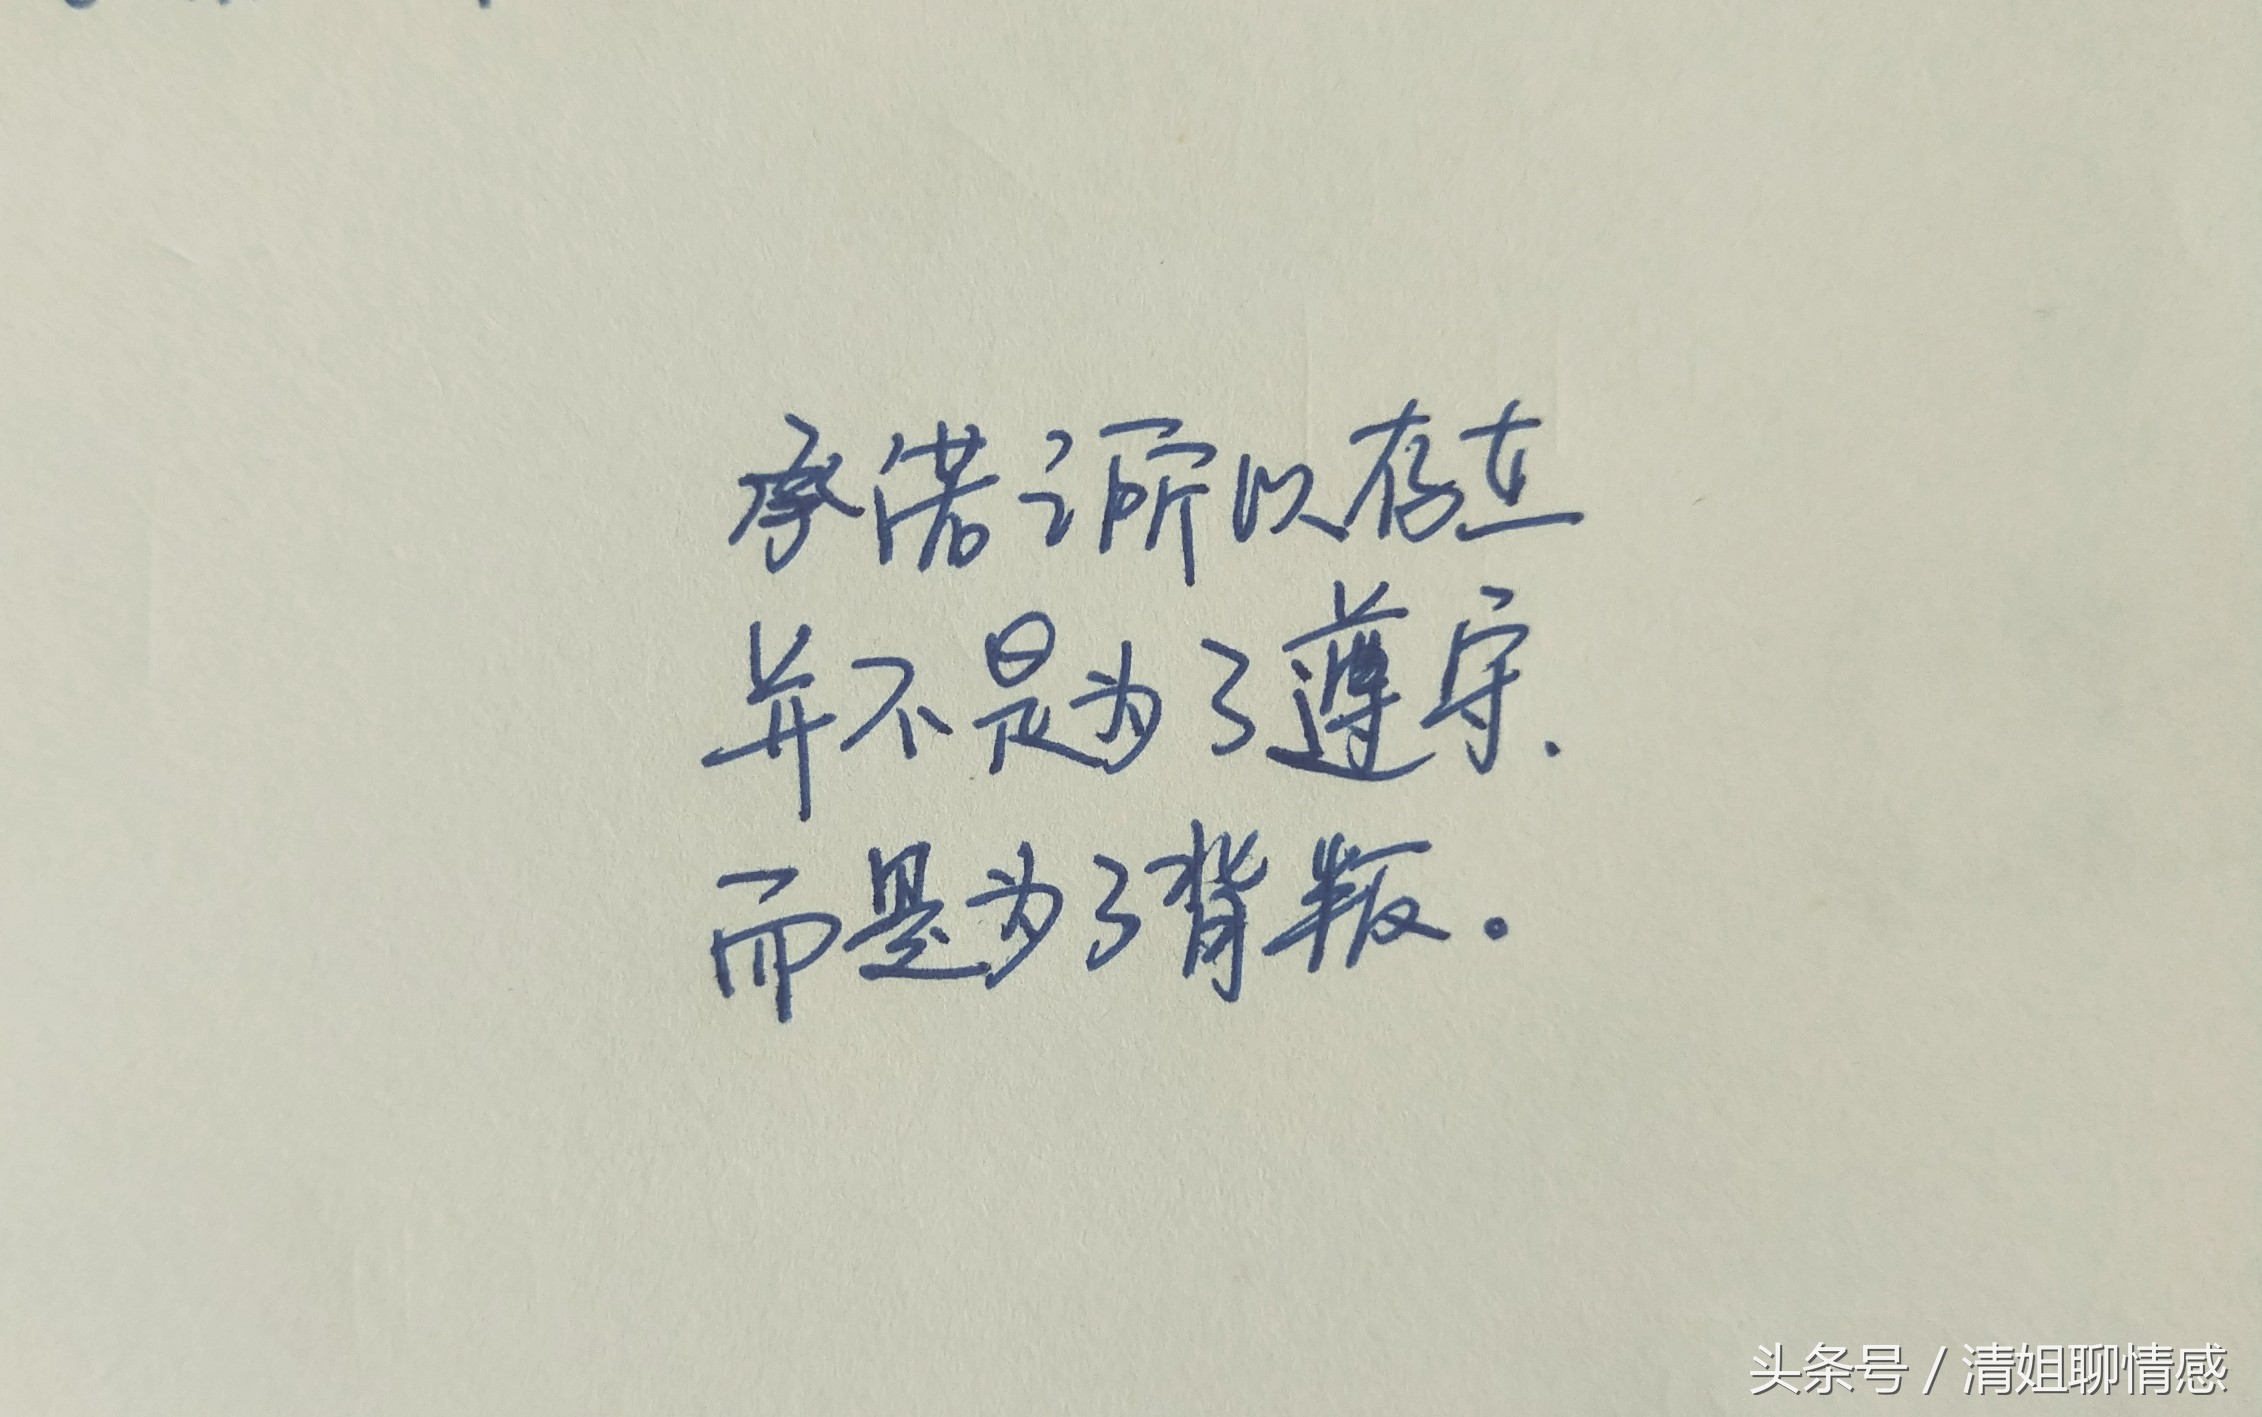 承诺之所以存在
并不是为了遵守.
而是为了背叛。
头条号 / 清姐聊情感